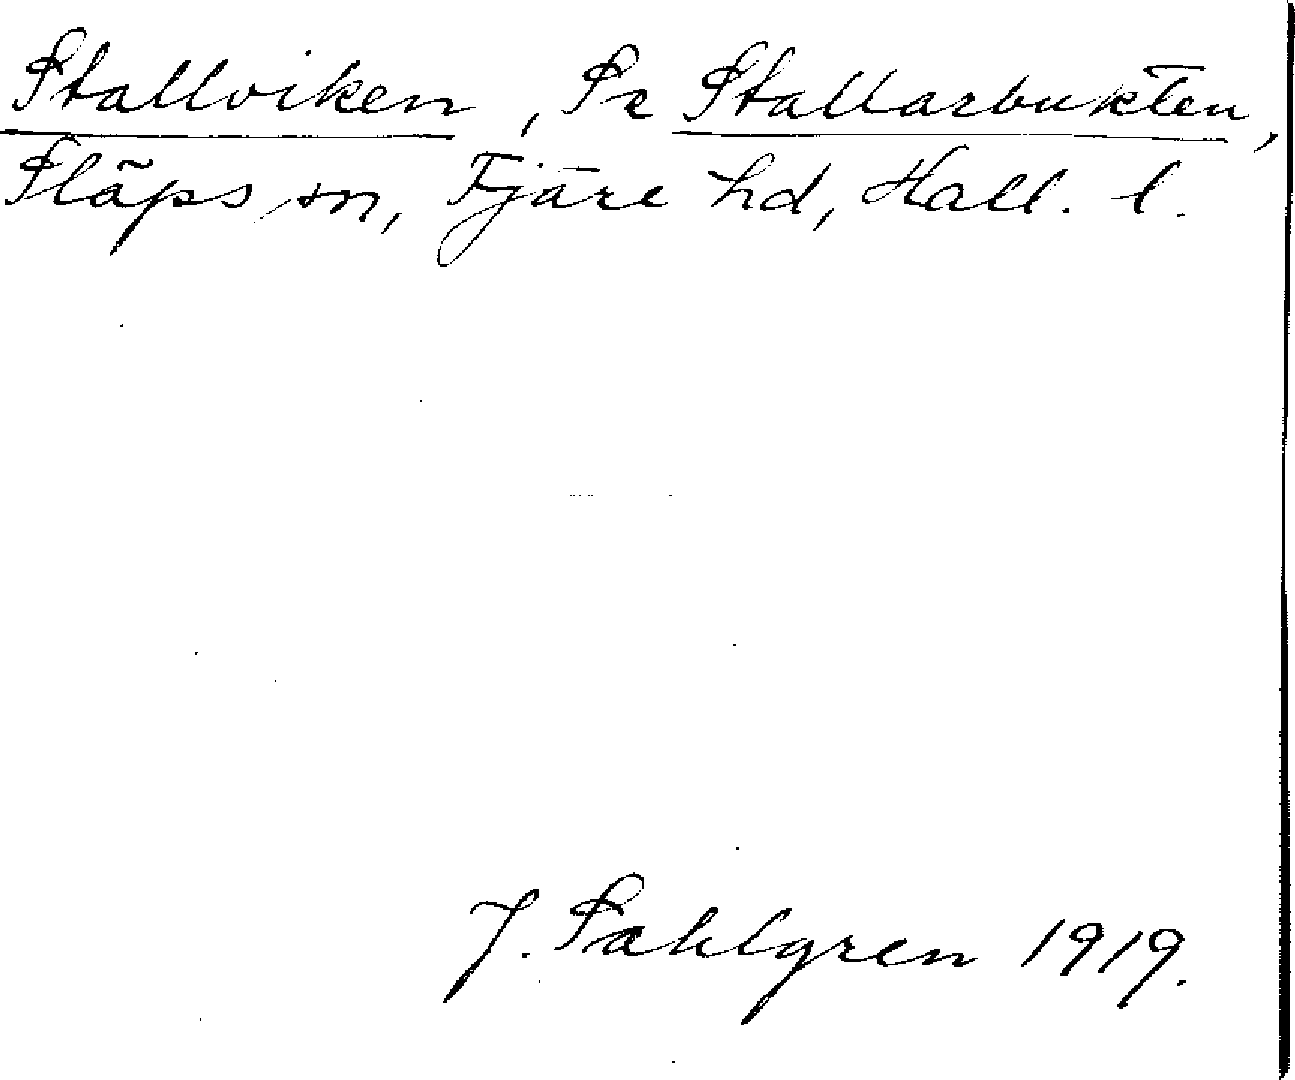 Stallviken, Se Stallarbukten,
Släps sn, Fjäre hd, Hall. l.
J. Sahlgren 1919.